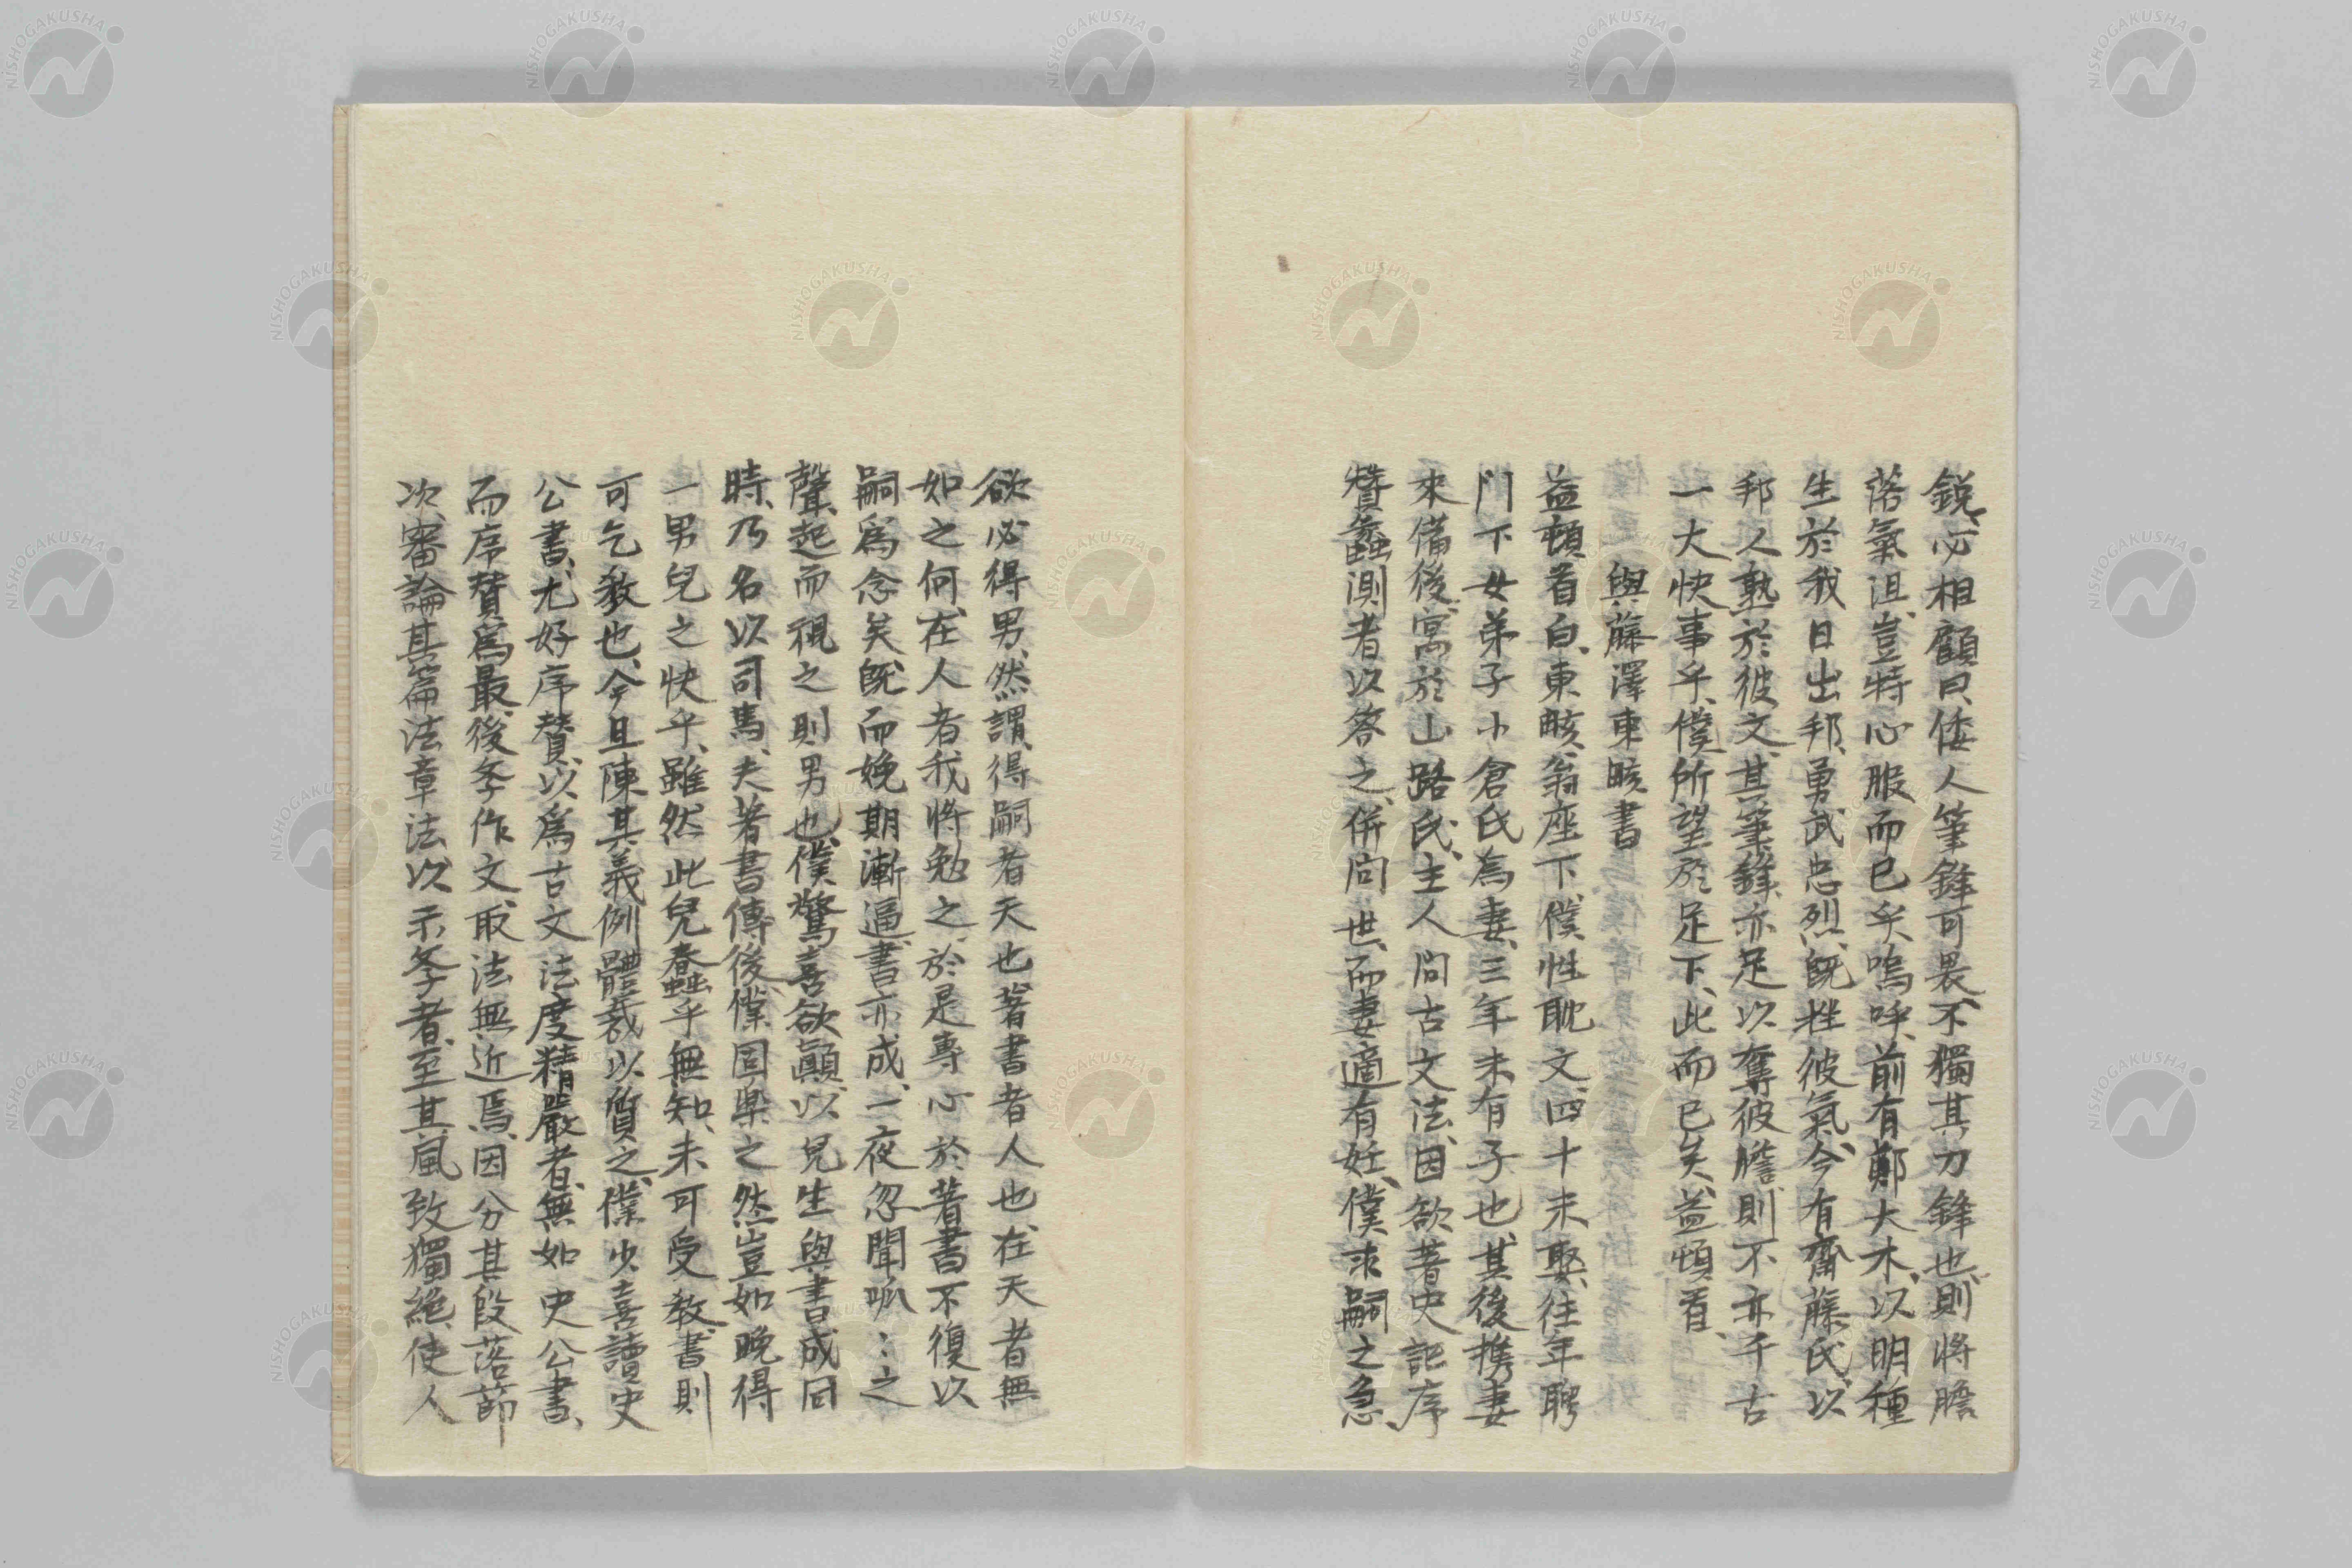 鋭、必相顧曰、倭人筆鋒可畏、不獨其刀鋒也、則將膽
落氣沮、豈特心服而已乎、嗚呼、前有鄭大木、以明種
生於我日出邦、勇武忠烈、既挫彼氣、今有齋藤氏、以
邦人熟於彼文、其筆鋒、亦足以奪彼膽、則不亦千古
一大快事乎、僕所望於足下、此而已矣、益頓首、
與藤澤東畡書
益頓首白、東畡翁座下、僕性耽文、四十未娶、往年聘
門下女弟子小倉氏為妻、三年未有子也、其後携妻
來備後、寓於山路氏、主人問古文法、因欲著史記序
贊蠡測者以答之、併問世、而妻適有妊、僕求嗣之急、
欲必得男、然謂、得嗣者天也、著書者人也、在天者無
如之何、在人者我將勉之、於是專心於著書不復以
嗣爲念矣、既而娩期漸逼、書亦成、一夜忽聞呱〻之
聲、起而視之則男也、僕驚喜欲顚、以兒生與書成同
時、乃名以司馬、夫著書傳後、僕固樂之、然豈如晚得
一男兒之快乎、雖然此兒蠢乎無知、未可受教、書則
可乞教也、今且陳其義例體裁以質之、僕少喜讀史
公書、尤好序贊、以爲古文法度精嚴者、無如史公書、
而序贊爲最、後年作文、取法無近焉、因分其段落節
次、審論其篇法章法、以示冬者、至其風致獨絶、使人
NISHOGAKUSHA